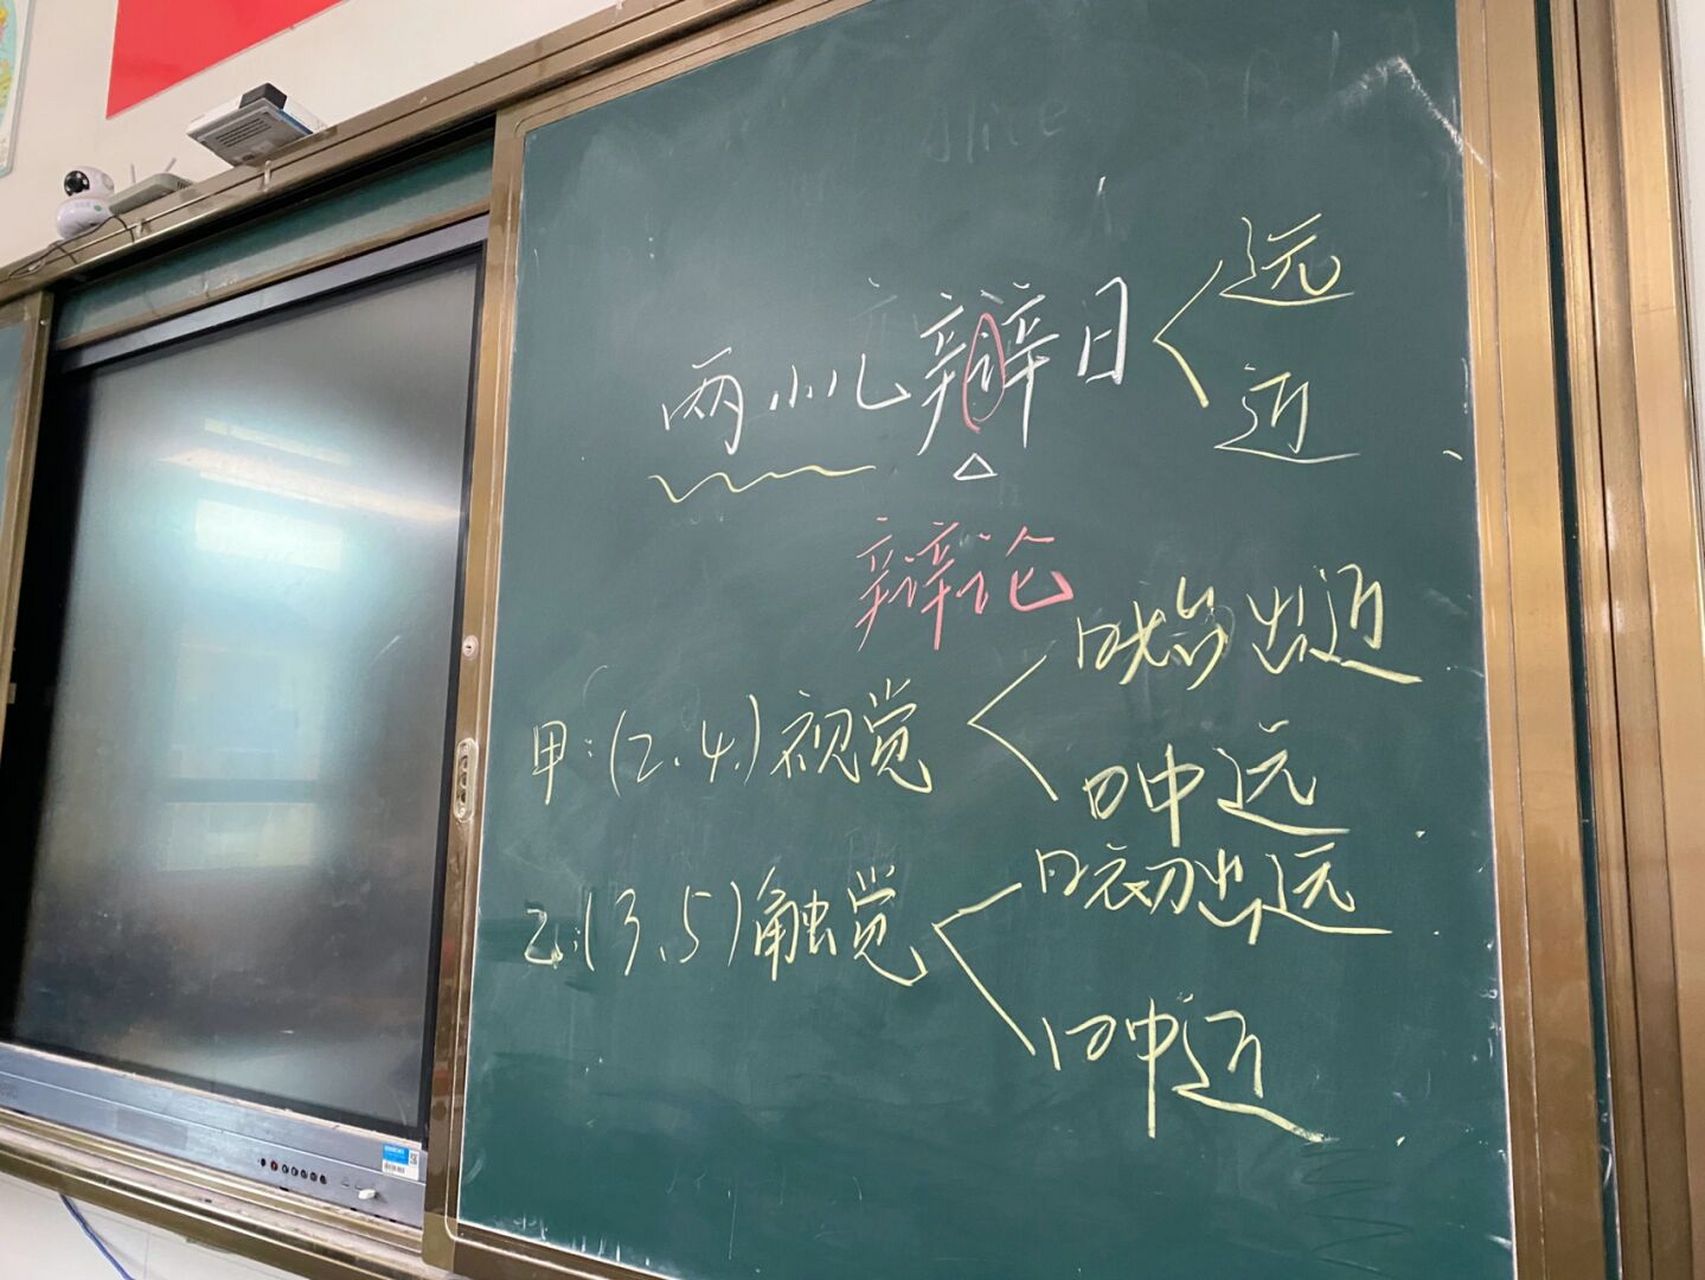 两小儿辩日
远
近
辩论
甲:(2.4.)视觉
日始出近
日中远
乙:(3.5)触觉
日初出远
日中近